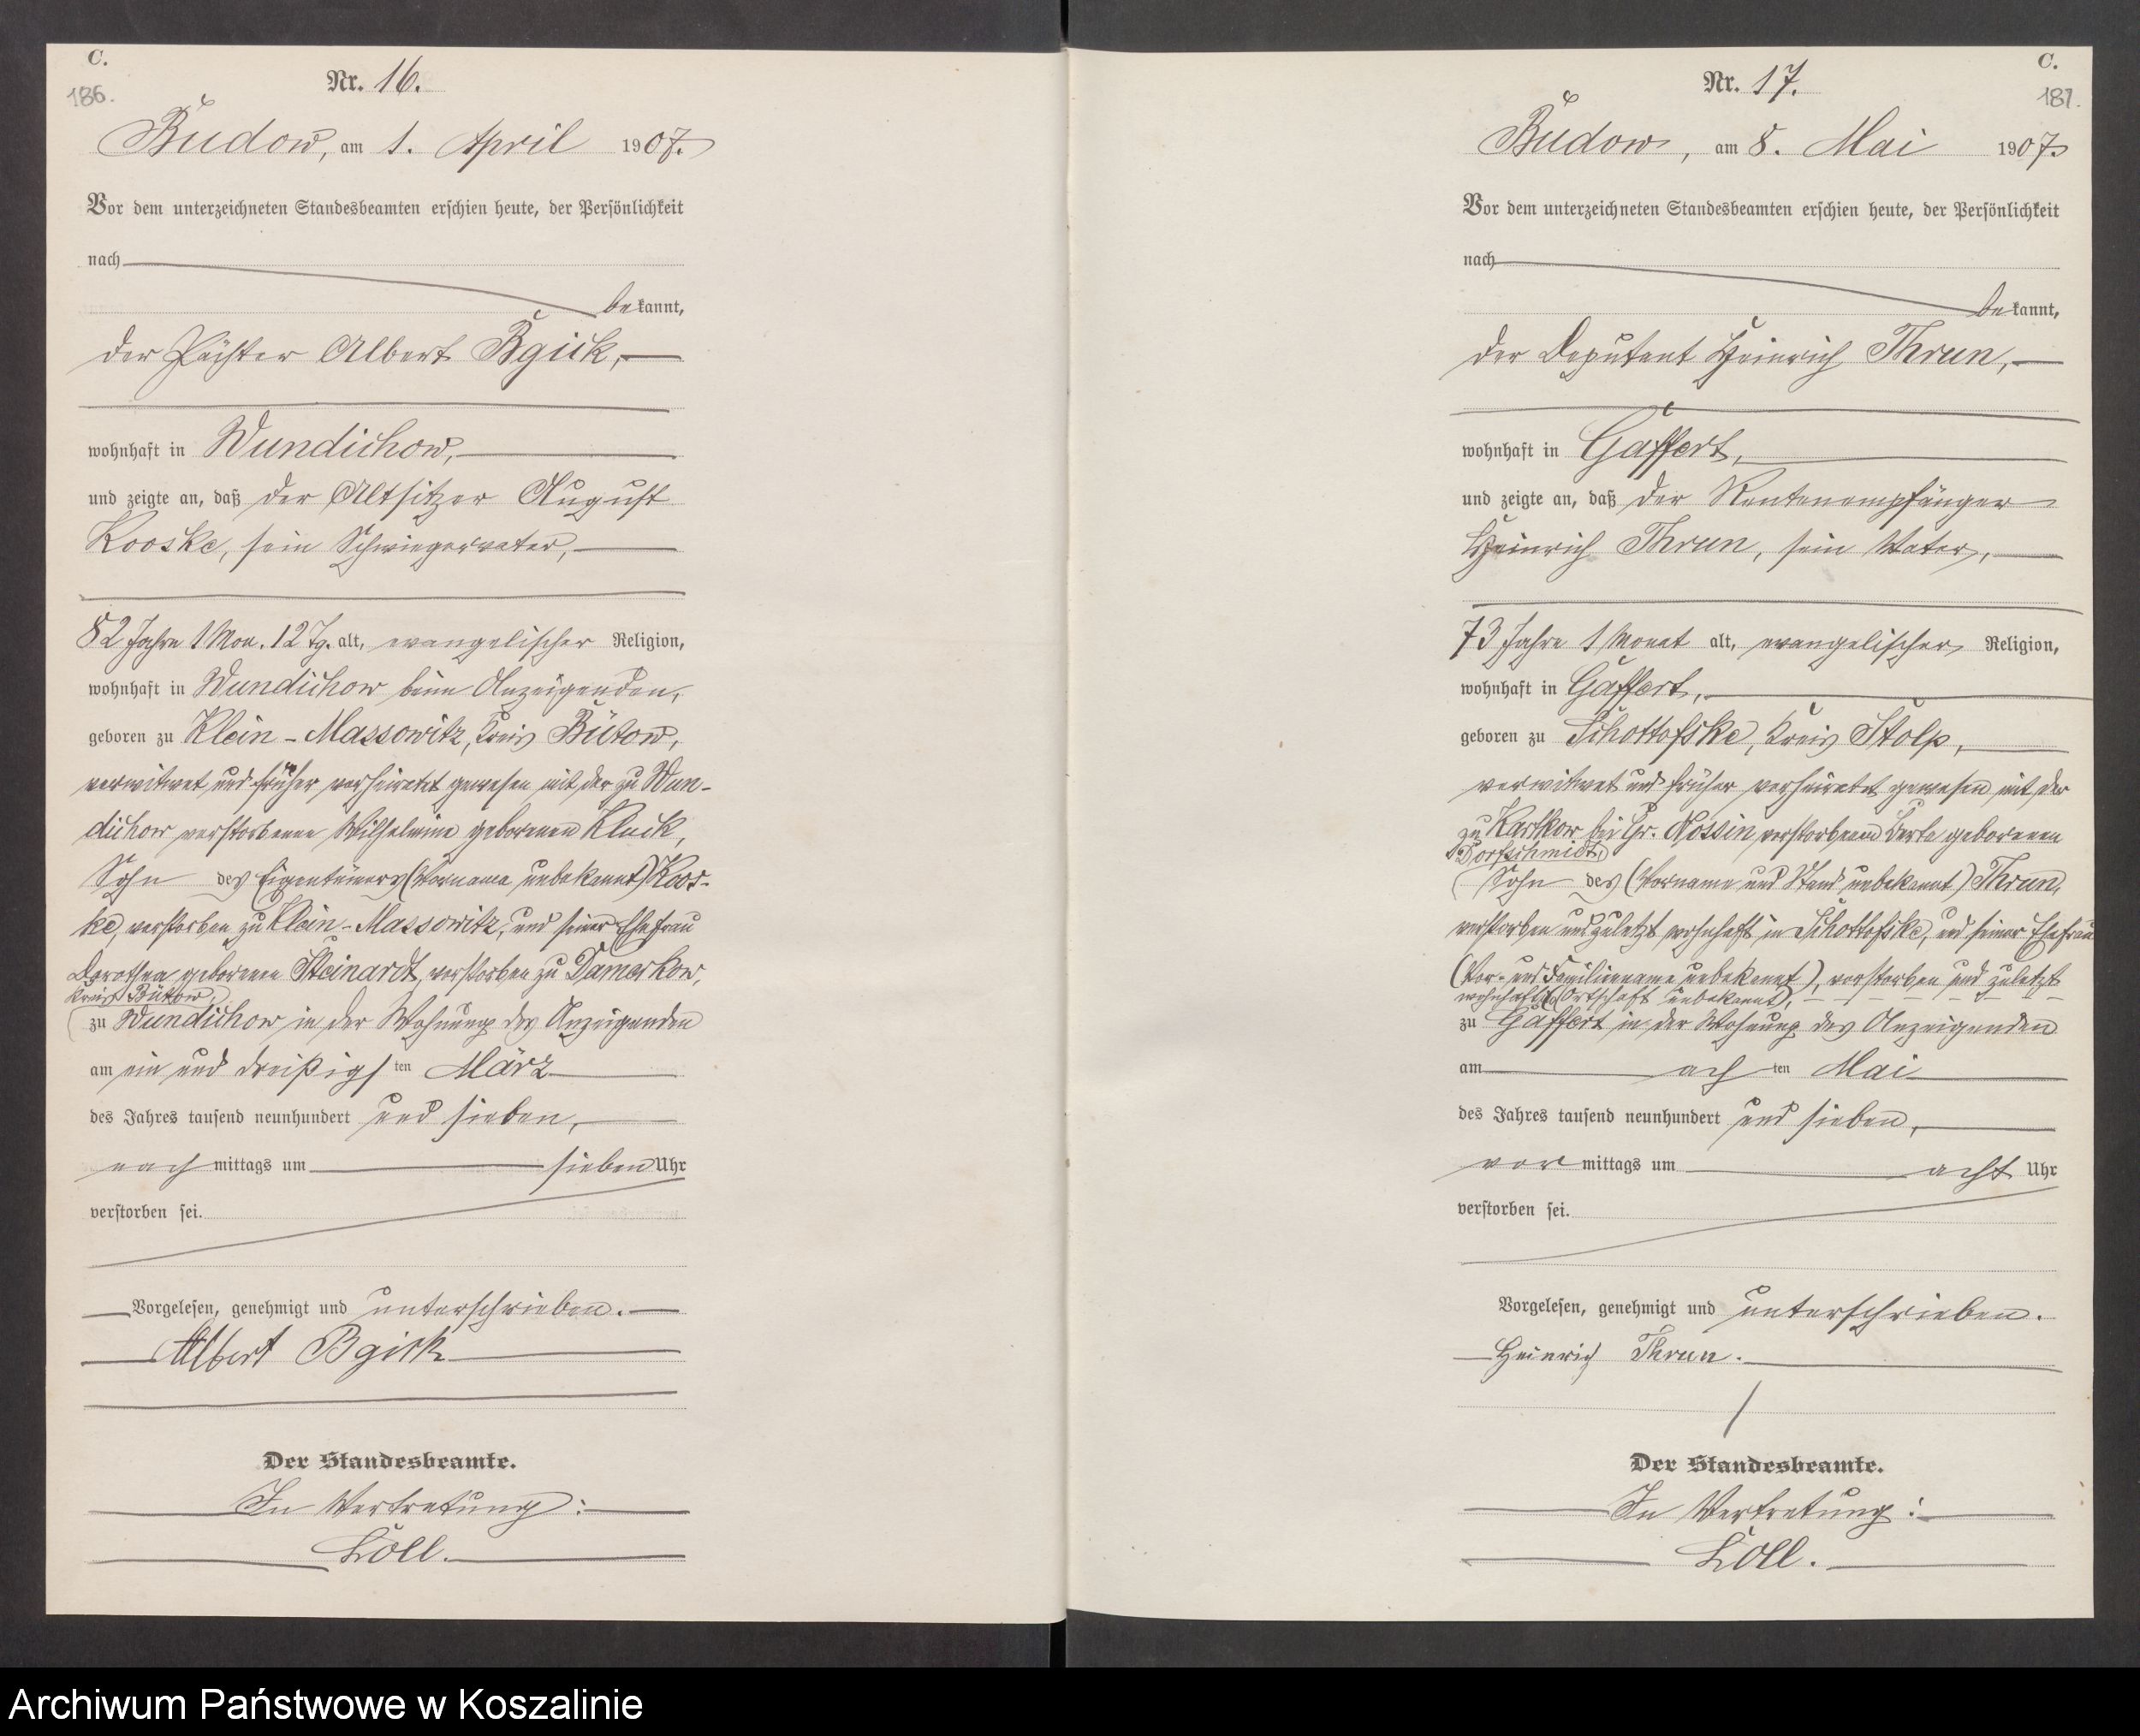 C.
186.
Nr. 16.
Budow, am 1. April 1907.
Vor dem unterzeichneten Standesbeamten erschien heute, der Persönlichkeit
nach
bekannt,
der Pächter Albert Bgick,
wohnhaft in Wundichow,
und zeigte an, daß der Altsitzer August
Kooske, sein Schwiegervater,
82 Jahre 1 Mon. 12 Tg. alt, evangelischer Religion,
wohnhaft in Wundichow beim Anzeigenden,
geboren zu Klein-Massowitz, Kreis Bütow,
verwitwet und früher verheiratet gewesen mit der zu Wun-
dichow verstorbenen Wilhelmine geborenen Kluck,
Sohn des Eigentümers (Vorname unbekannt) Koos-
ke, verstorben zu Klein-Massowitz, und seiner Ehefrau
Dorothea geborenen Steinardt, verstorben zu Damerkow,
Kreis Bütow,
zu Wundichow in der Wohnung des Anzeigenden
am ein und dreißigsten März
des Jahres tausend neunhundert und sieben,
nach mittags um sieben Uhr
verstorben sei.
Vorgelesen, genehmigt und unterschrieben.
Albert Bgick
Der Standesbeamte.
In Vertretung:
Löll.
C.
187.
Nr. 17.
Budow, am 8. Mai 1907.
Vor dem unterzeichneten Standesbeamten erschien heute, der Persönlichkeit
nach
bekannt,
der Deputant Heinrich Thrun,
wohnhaft in Gaffert,
und zeigte an, daß der Rentenempfänger
Heinrich Thrun, sein Vater,
73 Jahre 1 Monat alt, evangelischer Religion,
wohnhaft in Gaffert,
geboren zu Schottofske, Kreis Stolp,
verwitwet und früher verheiratet gewesen mit der
zu Karlkow bei Gr. Nossin verstorbenen Berta geborenen
Dorfschmidt,
Sohn des (Vorname und Stand unbekannt) Thrun,
verstorben und zuletzt wohnhaft in Schottofske, und seiner Ehefrau
(Vor- und Familienname unbekannt), verstorben und zuletzt
wohnhaft (Ortschaft unbekannt),
zu Gaffert in der Wohnung des Anzeigenden
am achten Mai
des Jahres tausend neunhundert und sieben,
vor mittags um acht Uhr
verstorben sei.
Vorgelesen, genehmigt und unterschrieben.
Heinrich Thrun.
Der Standesbeamte.
In Vertretung:
Löll.
Archiwum Państwowe w Koszalinie